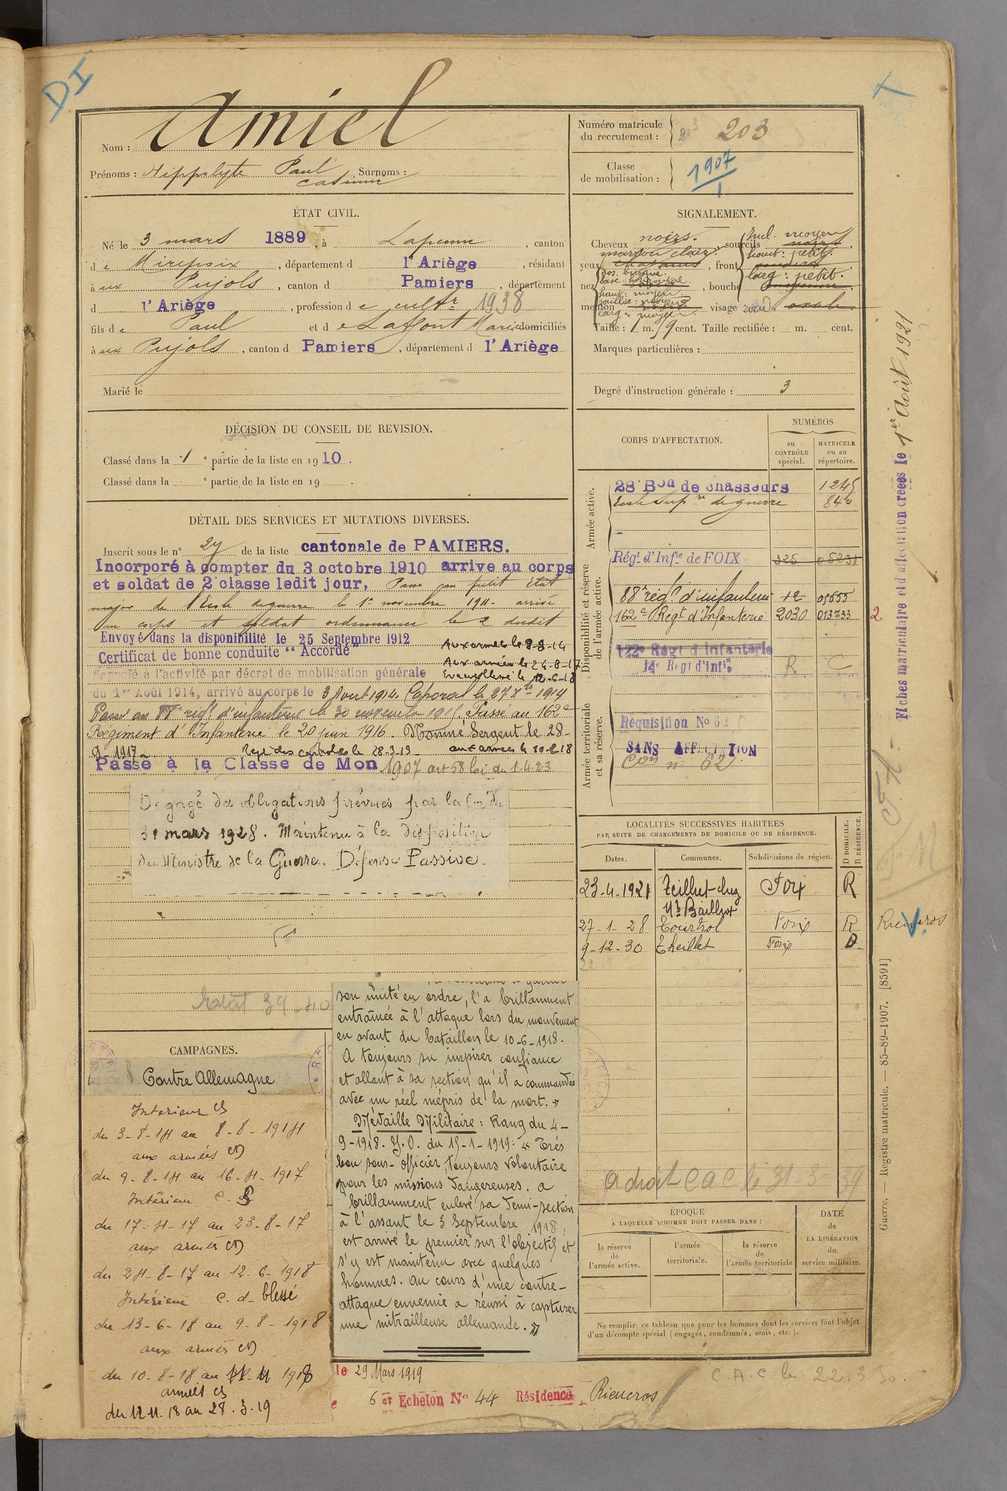 DI
Amiel
Nom :
Prénoms : Hippolyte Paul Surnoms :
Casimir
Numéro matricule
du recrutement : 203
Classe
de mobilisation : 1907
ÉTAT CIVIL.
Né le 3 mars 1889, à Lapenne, canton
de Mirepoix, département d l'Ariège, résidant
à aux Pujols, canton d Pamiers, département
d l'Ariège, profession de cultr 1938
fils de Paul et de Laffont Marie domiciliés
à aux Pujols, canton d Pamiers, département d l'Ariège
Marié le
SIGNALEMENT.
Cheveux noirs. sourcils
yeux front
nez bouche
menton visage
Taille : 1 m. 59 cent. Taille rectifiée : m. cent.
Marques particulières :
Degré d'instruction générale : 3
DÉCISION DU CONSEIL DE REVISION.
Classé dans la 1e partie de la liste en 1910.
Classé dans la e partie de la liste en 19 .
DÉTAIL DES SERVICES ET MUTATIONS DIVERSES.
Inscrit sous le n° 27 de la liste cantonale de PAMIERS.
Incorporé à compter du 3 octobre 1910 arrive au corps
et soldat de 2e classe ledit jour, Passé au petit état
major de l'École de guerre le 1er novembre 1911. arrivé
au corps et soldat ordonnance le 2 dudit
Envoyé dans la disponibilité le 25 Septembre 1912
Certificat de bonne conduite "Accordé"
Aux armées le 8-9-14
Aux armées le 24-8-17
Evacué blessé le 12-6-18
Rappelé à l'activité par décret de mobilisation générale
du 1er Août 1914, arrivé au corps le 3 Aout 1914. Caporal le 27 Xbre 1914
Passé au 88e régt d'infanterie le 30 novembre 1915. Passé au 162e
Régiment d'Infanterie le 20 juin 1916. Nommé Sergent le 28-
9-1917 Rayé des contrôles le 28-3-19 aux armées le 10-8-18
Passé à la Classe de Mon 1907 art 58 loi du 1-4-23
Dégagé des obligations prévues par la loi du
31 mars 1928. Maintenu à la disposition
du Ministre de la Guerre. Défense Passive.
CORPS D'AFFECTATION.
NUMÉROS
au
CONTRÔLE
spécial.
MATRICULE
ou au
répertoire.
Armée active.
28e Bon de chasseurs 1245
École Supre de guerre 846
Disponibilité et réserve
de l'armée active.
Régt d'Infie de FOIX 325 05231
88e régt d'infanterie 12 01555
162e Régt d'Infanterie 2030 013733
122e Régt d'Infanterie
14e Régt d'Infie R C
Armée territoriale
et sa réserve.
Réquisition No 62
SANS AFFECTATION
Con n° 62
LOCALITÉS SUCCESSIVES HABITÉES
PAR SUITE DE CHANGEMENTS DE DOMICILE OU DE RÉSIDENCE.
Dates. Communes. Subdivisions de région.
D DOMICILE.
R RÉSIDENCE.
23-4-1921 Teillet chez Foix R
Mr Baillot
27-1-28 Tourtrol Foix R
9-12-30 Theillet Foix D
Fiches matriculaire et d'affectation créées le 1er Août 1921
2
Rieucros
Guerre. — Registre matricule. — 85-89-1907. [8591]
CAMPAGNES.
Contre Allemagne
Intérieur CS
du 3-8-14 au 8-8-1914
aux armées CD
du 9-8-14 au 16-4-1917
Intérieur C. S
du 17-4-17 au 23-8-17
aux armées CD
du 24-8-17 au 12-6-1918
Intérieur C. d. blessé
du 13-6-18 au 9-8-1918
aux armées CD
du 10-8-18 au 11-11 1918
armées CS
du 12-11-18 au 28-3-19
son unité en ordre, l'a brillamment
entraînée à l'attaque lors du mouvement
en avant du bataillon le 10-6-1918.
A toujours su inspirer confiance
et allant à sa section qu'il a commandée
avec un réel mépris de la mort. »
Médaille Militaire : Rang du 4-
9-1918. J.O. du 15-1-1919 : « Très
bon sous-officier toujours volontaire
pour les missions dangereuses. a
brillamment enlevé sa demi-section
à l'assaut le 3 Septembre 1918,
est arrivé le premier sur l'objectif et
s'y est maintenu avec quelques
hommes. au cours d'une contre-
attaque ennemie a réussi à capturer
une mitrailleuse allemande. »
a droit CAC le 31-3-39
ÉPOQUE
À LAQUELLE L'HOMME DOIT PASSER DANS :
la réserve
de
l'armée active.
l'armée
territoriale.
la réserve
de
l'armée territoriale
DATE
de
LA LIBÉRATION
du
service militaire.
Ne remplir ce tableau que pour les hommes dont les services font l'objet
d'un décompte spécial (engagés, condamnés, omis, etc.).
le 29 Mars 1919
6 et Echelon No 44 Résidence Rieucros
C.A.C le 22.3.30.